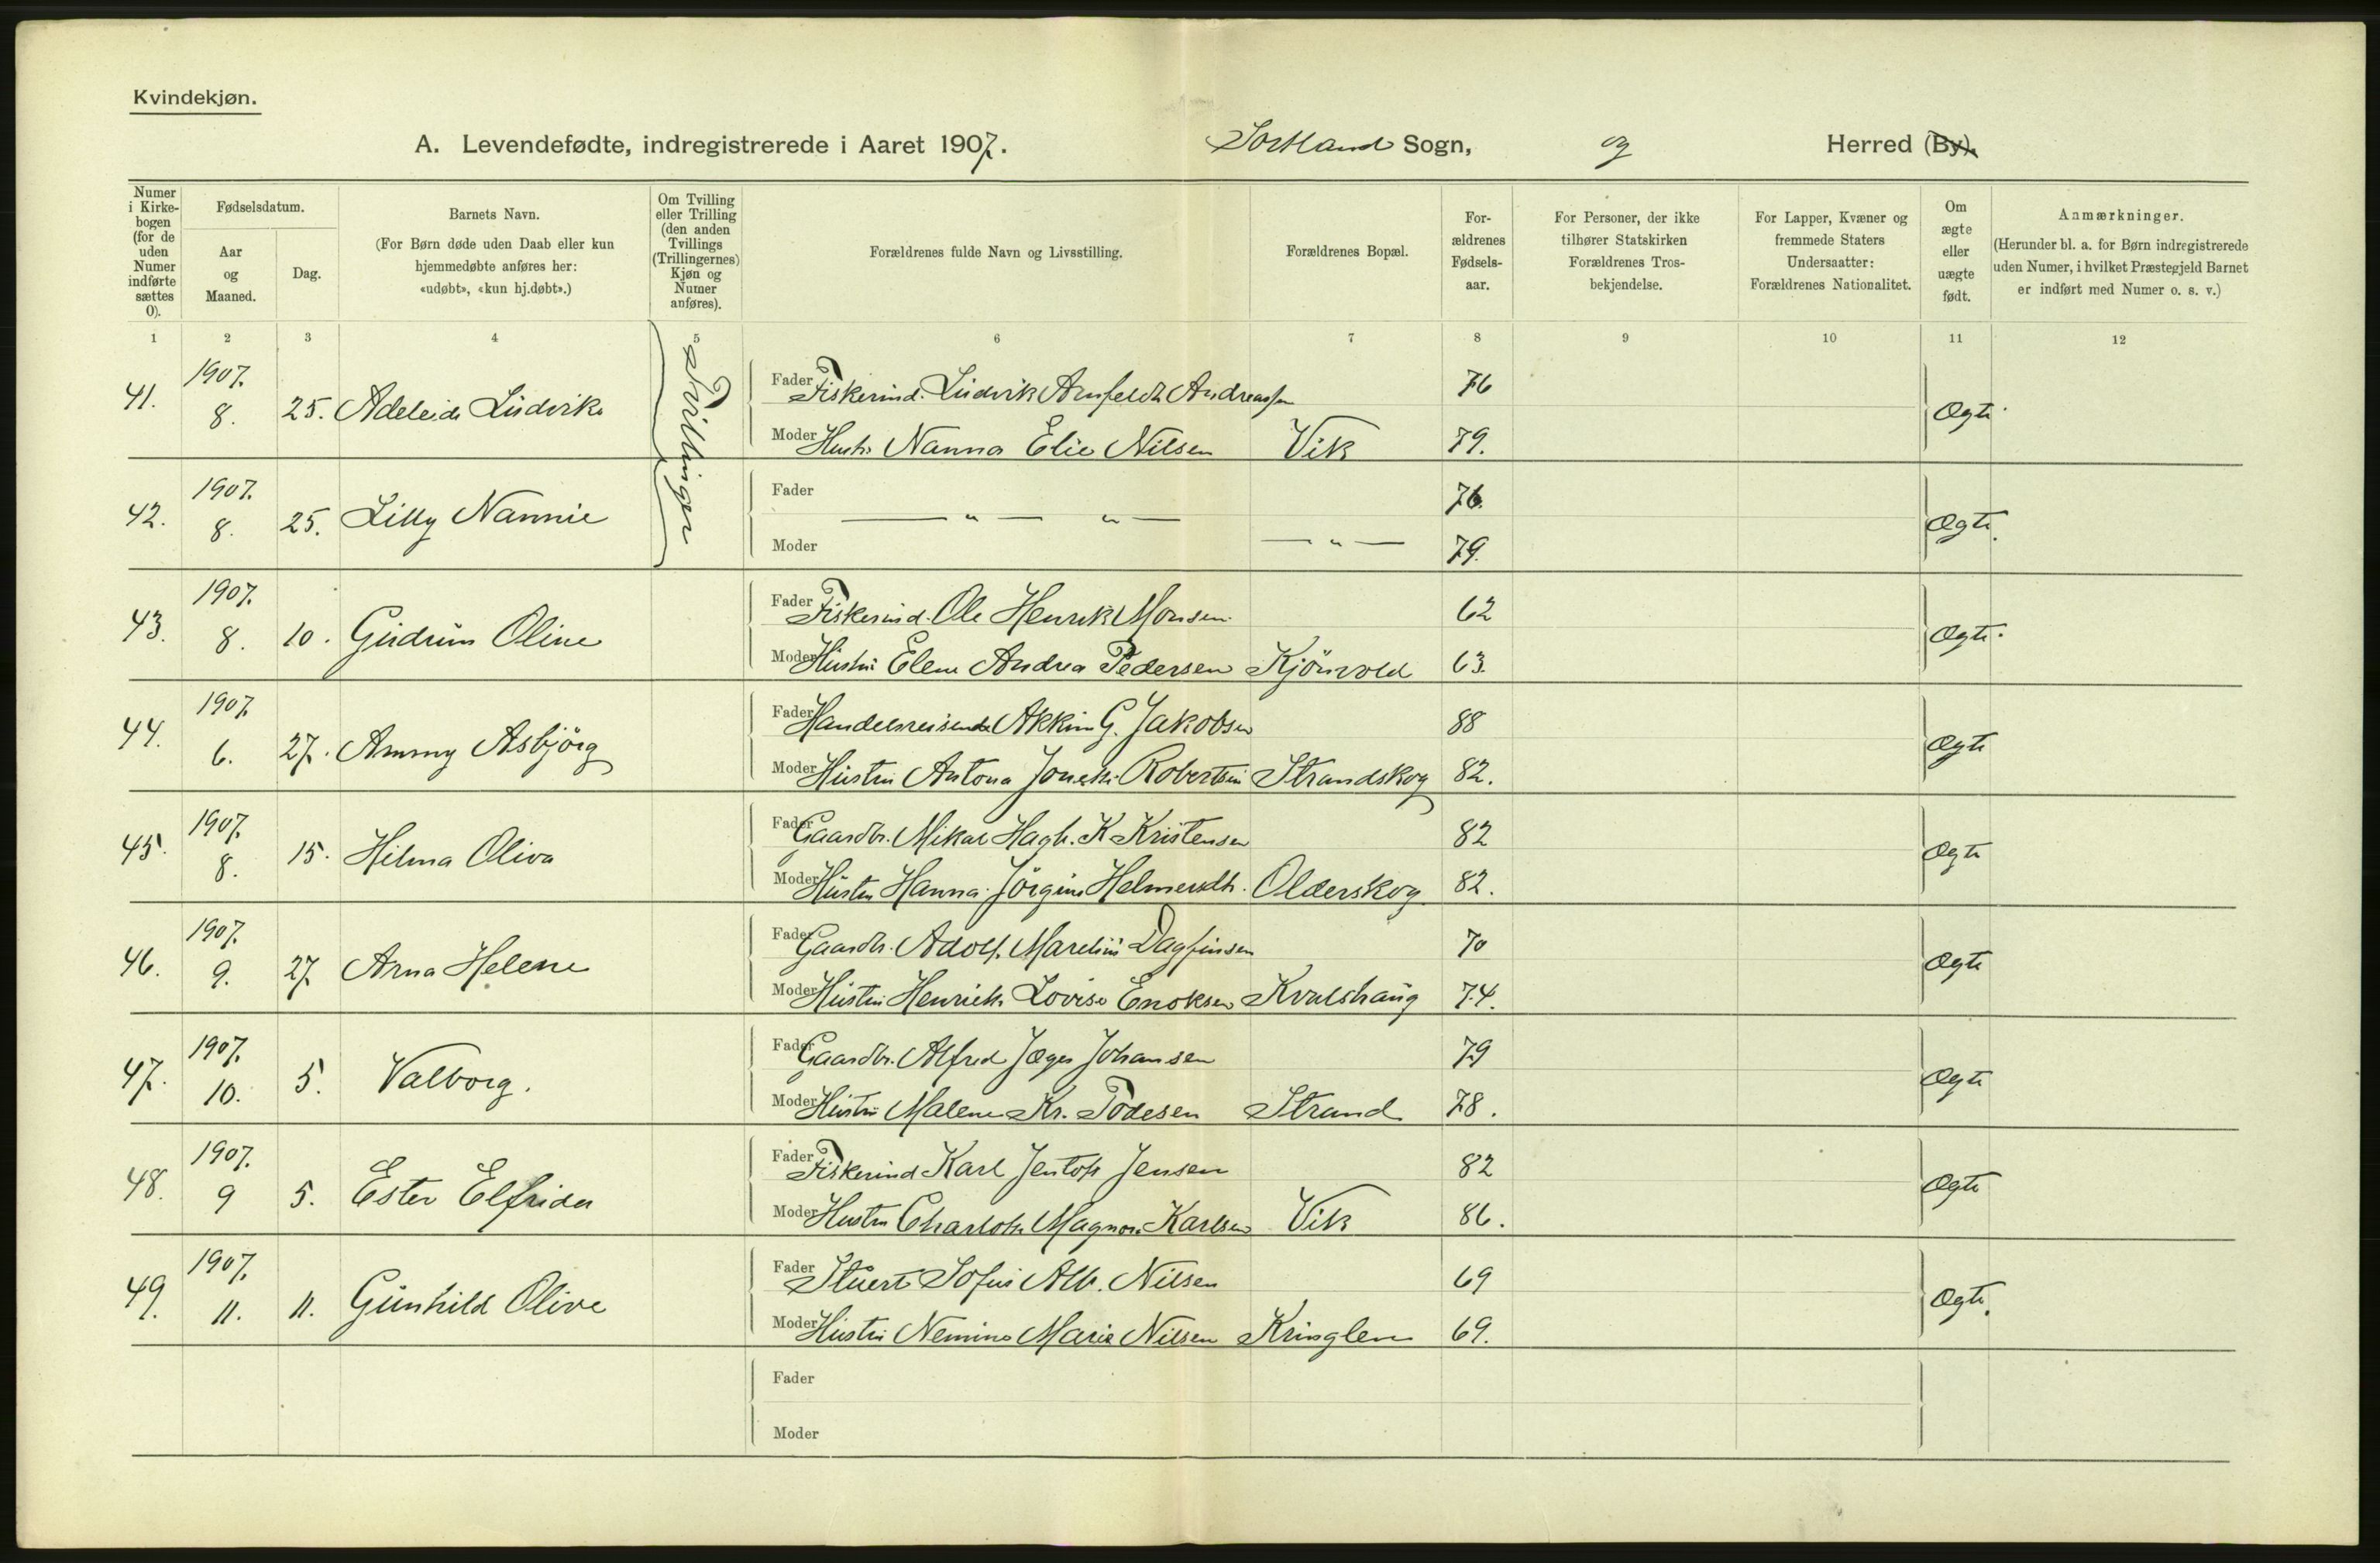 Kvindekjøn.
A. Levendefødte, indregistrerede i Aaret 1907. Sortland Sogn, og Herred (By).
Numer i Kirkebogen (for de uden Numer indførte sættes 0).
Fødselsdatum.
Aar og Maaned.
Dag.
Barnets Navn.
(For Børn døde uden Daab eller kun hjemmedøbte anføres her: «udøbt», «kun hj.døbt».)
Om Tvilling eller Trilling (den anden Tvillings (Trillingernes) Kjøn og Numer anføres).
Forældrenes fulde Navn og Livsstilling.
Forældrenes Bopæl.
For-ældrenes Fødsels-aar.
For Personer, der ikke tilhører Statskirken Forældrenes Tros-bekjendelse.
For Lapper, Kvæner og fremmede Staters Undersaatter: Forældrenes Nationalitet.
Om ægte eller uægte født.
Anmærkninger.
(Herunder bl. a. for Børn indregistrerede uden Numer, i hvilket Præstegjeld Barnet er indført med Numer o. s. v.)
1 2 3 4 5 6 7 8 9 10 11 12
Tvillinger
41. 1907. 8. 25. Adeleide Ludvika Ægte
Fader Fiskerind. Ludvik Arnfeldt Andreassen 76
Moder Hustr. Nanna Elie Nilsen Vik 79.
42. 1907. 8. 25. Lilly Nannie Ægte.
Fader — " — " — 76.
Moder — " — 79.
43. 1907. 8. 10. Gudrun Oline Ægte.
Fader Fiskerind. Ole Henrik Monsen 62
Moder Hustru Elene Andrea Pedersen Kjönvold 63.
44. 1907. 6. 27. Ammy Asbjörg Ægte
Fader Handelsreisende G. Jakobsen 88
Moder Hustru Antona Robertsen Strandskog 82.
45. 1907. 8. 15. Hilma Oliva Ægte
Fader Gaardbr. Mikal Hagb. K Kristensen 82
Moder Hustru Hanna Jörgine Olderskog 82.
46. 1907. 9. 27 Arna Helene Ægte
Fader Gaardbr. Adolf Dagfinsen 70
Moder Hustru Henrikke Lovise Enoksen Kvalshaug 74.
47. 1907. 10. 5. Valborg. Ægte
Fader Gaardbr. Alfred Jæger Johansen 79
Moder Hustru Malene Kr. Strand 78.
48. 1907. 9 5. Ester Elfrida Ægte
Fader Fiskerind Karl Jentoft Jensen 82
Moder Hustru Charlotte Magnora Karlsen Vik 86.
49. 1907. 11. 11. Gunhild Olive Ægte.
Fader Stuert Sofus Alb. Nilsen 69
Moder Hustru Marie Nilsen Kringlen 69.
Fader
Moder